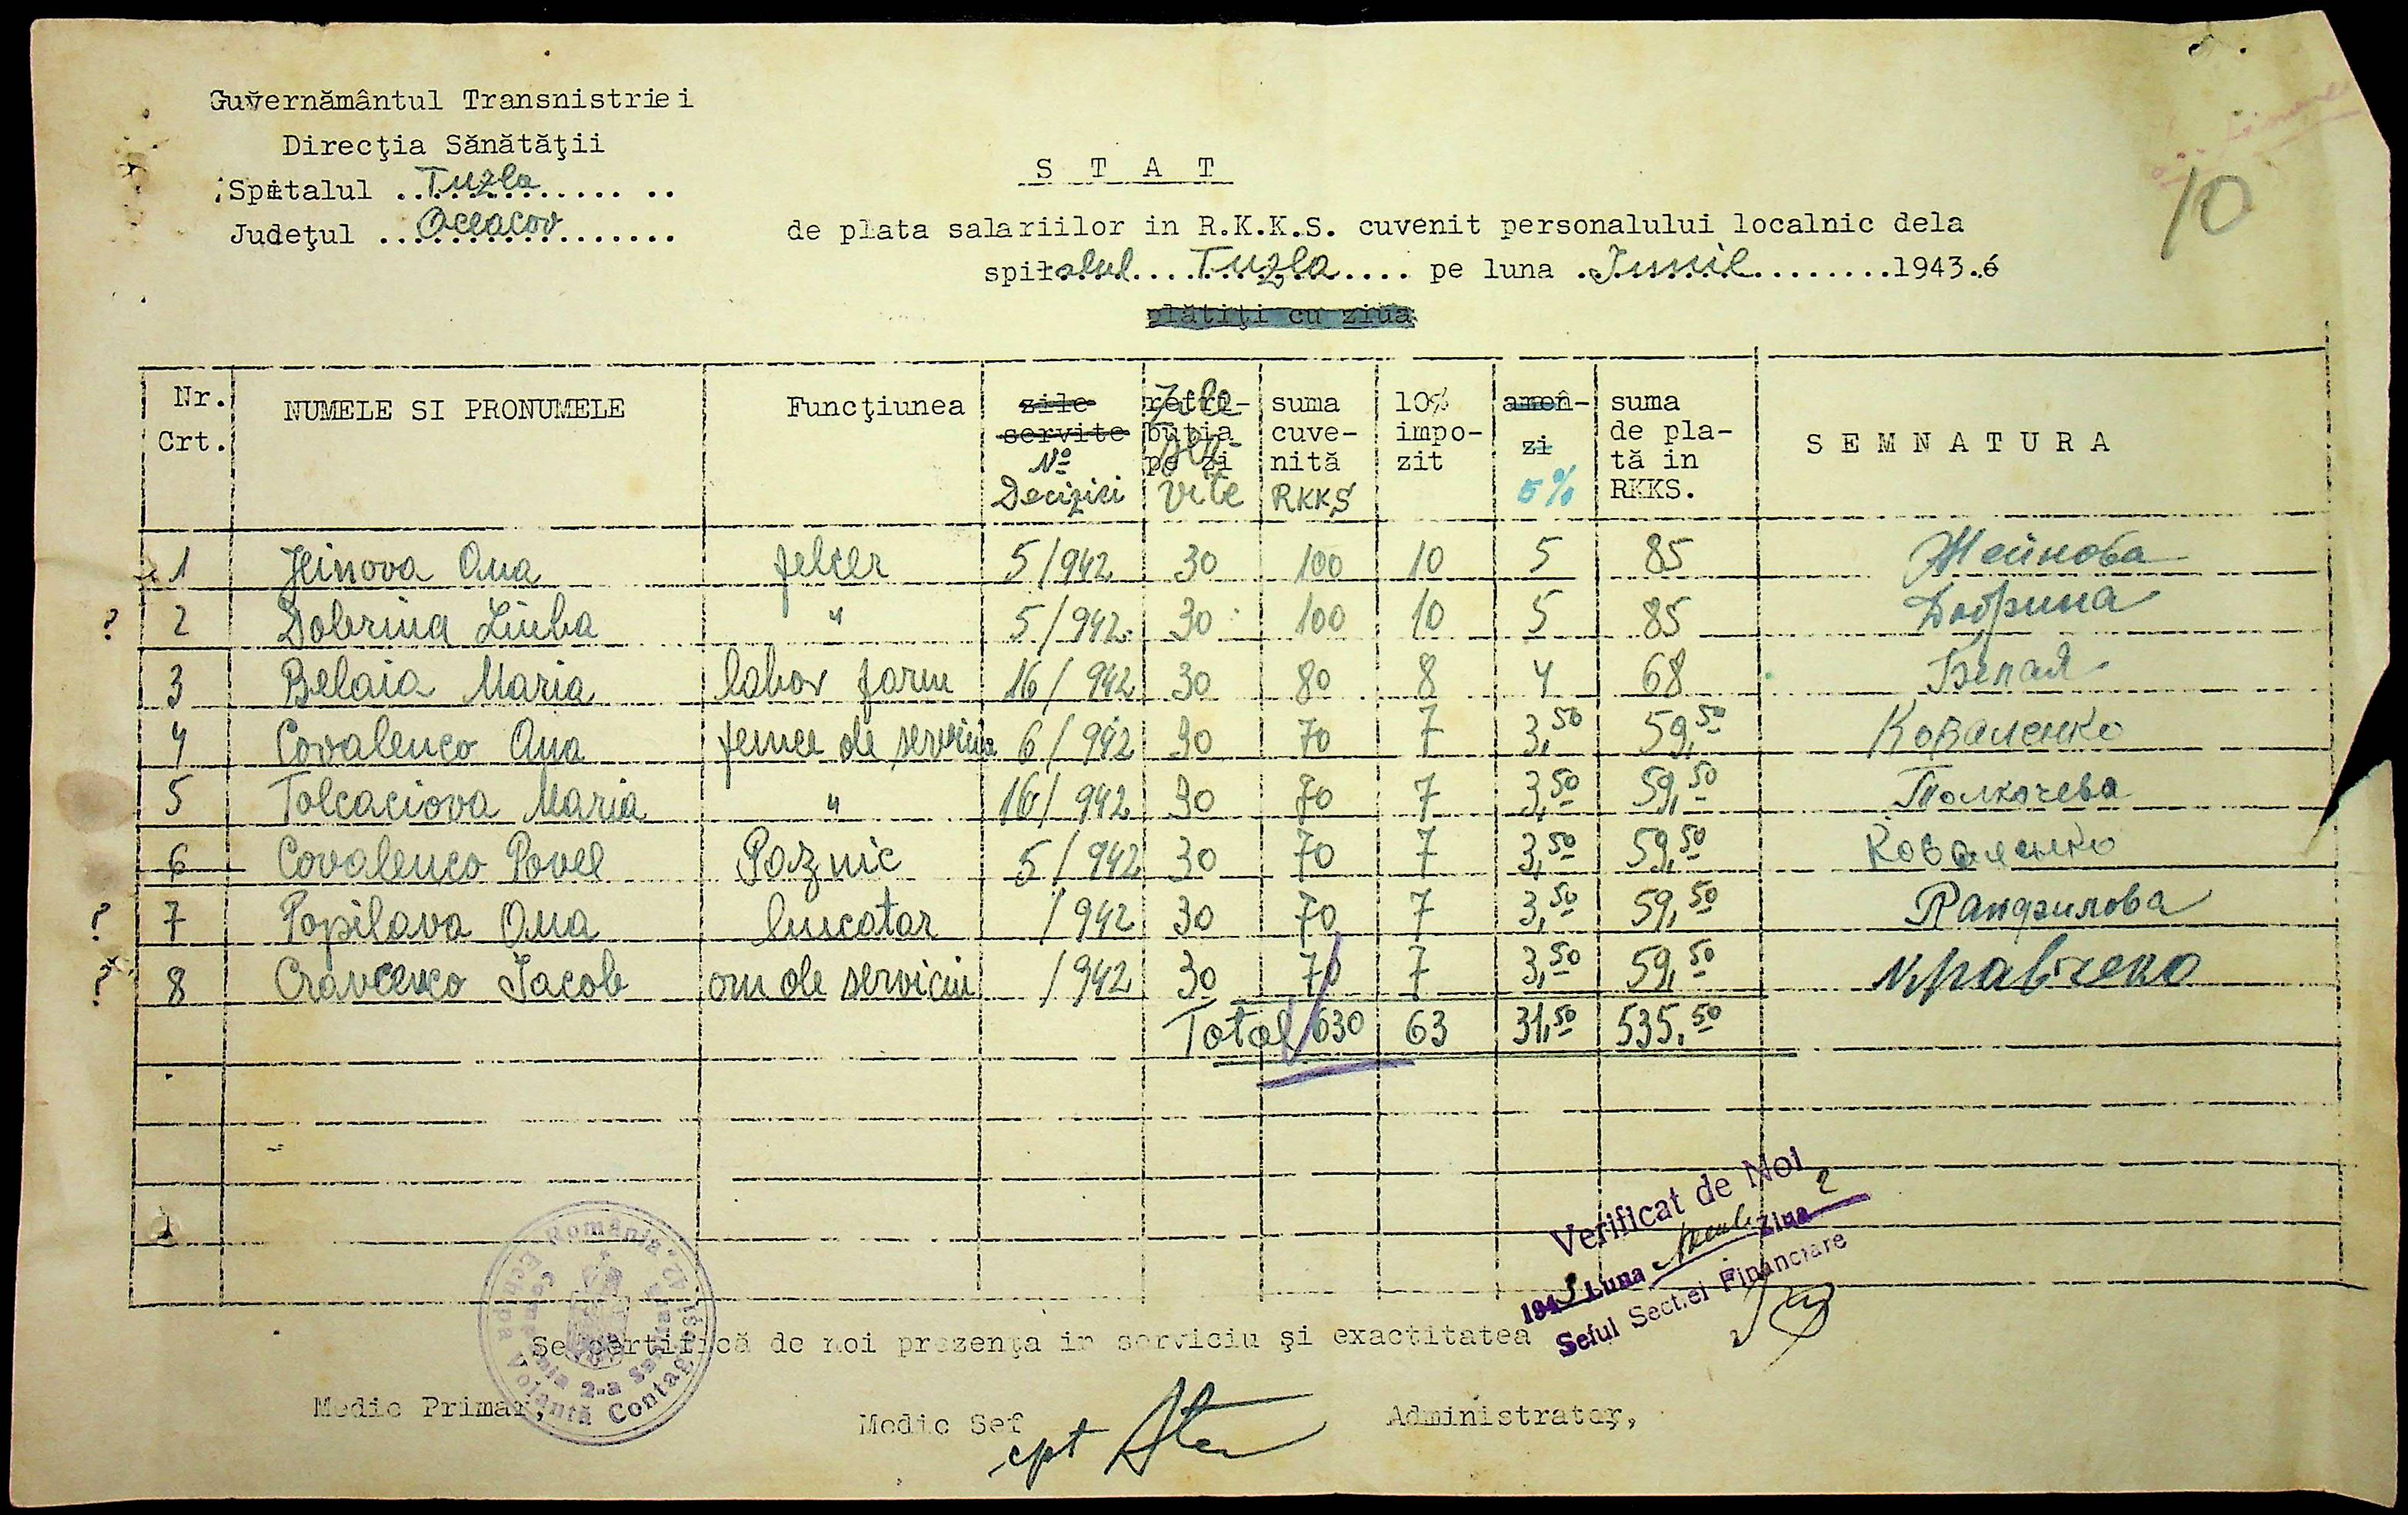 Guvernământul Transnistriei
Direcţia Sănătăţii
Spitalul .. Tuzla .. ..
Judeţul .. Oceacov ..
10
S T A T
de plata salariilor in R.K.K.S. cuvenit personalului localnic dela
spitalul.... Tuzla .... pe luna . Iunie ........1943.
plătiţi cu ziua
Nr. Crt. NUMELE SI PRONUMELE Funcţiunea zile servite No Deciziei retri-buţia pe zi Zile ser-vite suma cuve-nită RKKS 10% impo-zit amen-zi 5% suma de pla-tă in RKKS. S E M N A T U R A
1 Jeinova Ana felcer 5/942 30 100 10 5 85 Жейнова
? 2 Dobrina Liuba " 5/942 30 100 10 5 85 Добрина
3 Belaia Maria labor farm 16/942 30 80 8 4 68 Белая
4 Covalenco Ana femee de serviciu 6/942 30 70 7 3,50 59,50 Коваленко
5 Tolcaciova Maria " 16/942 30 70 7 3,50 59,50 Толкачева
6 Covalenco Pavel Paznic 5/942 30 70 7 3,50 59,50 Коваленко
? 7 Popilava Ana bucatar /942 30 70 7 3,50 59,50 Панфилова
? 8 Cravcenco Iacob om de serviciu /942 30 70 7 3,50 59,50 Кравченко
Total 630 63 31,50 535.50
Verificat de Noi
1943 Luna Iunie Ziua 2
Seful Secţiei Financiare
România
Echipa Volantă Contagioşi
Compania 2-a Sanitară
Se certifică de noi prezenţa in serviciu şi exactitatea
Medic Primar,
Medic Sef
cpt
Administrator,